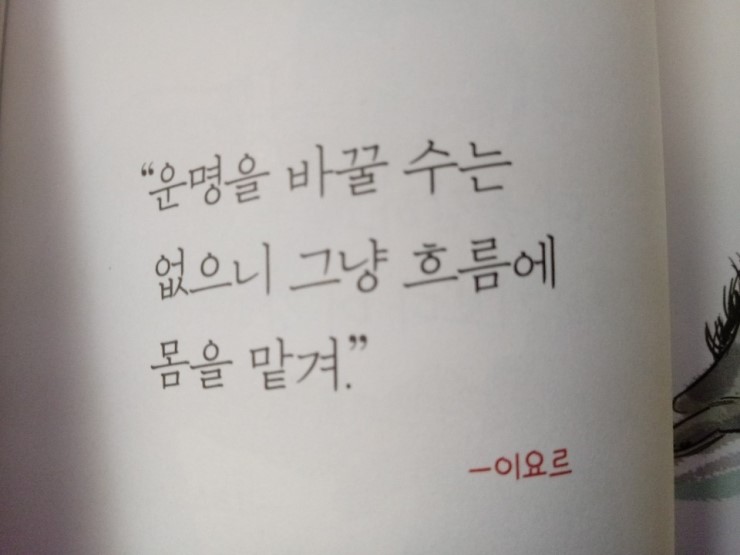 “운명을 바꿀 수는
없으니 그냥 흐름에
몸을 맡겨.”
–이요르